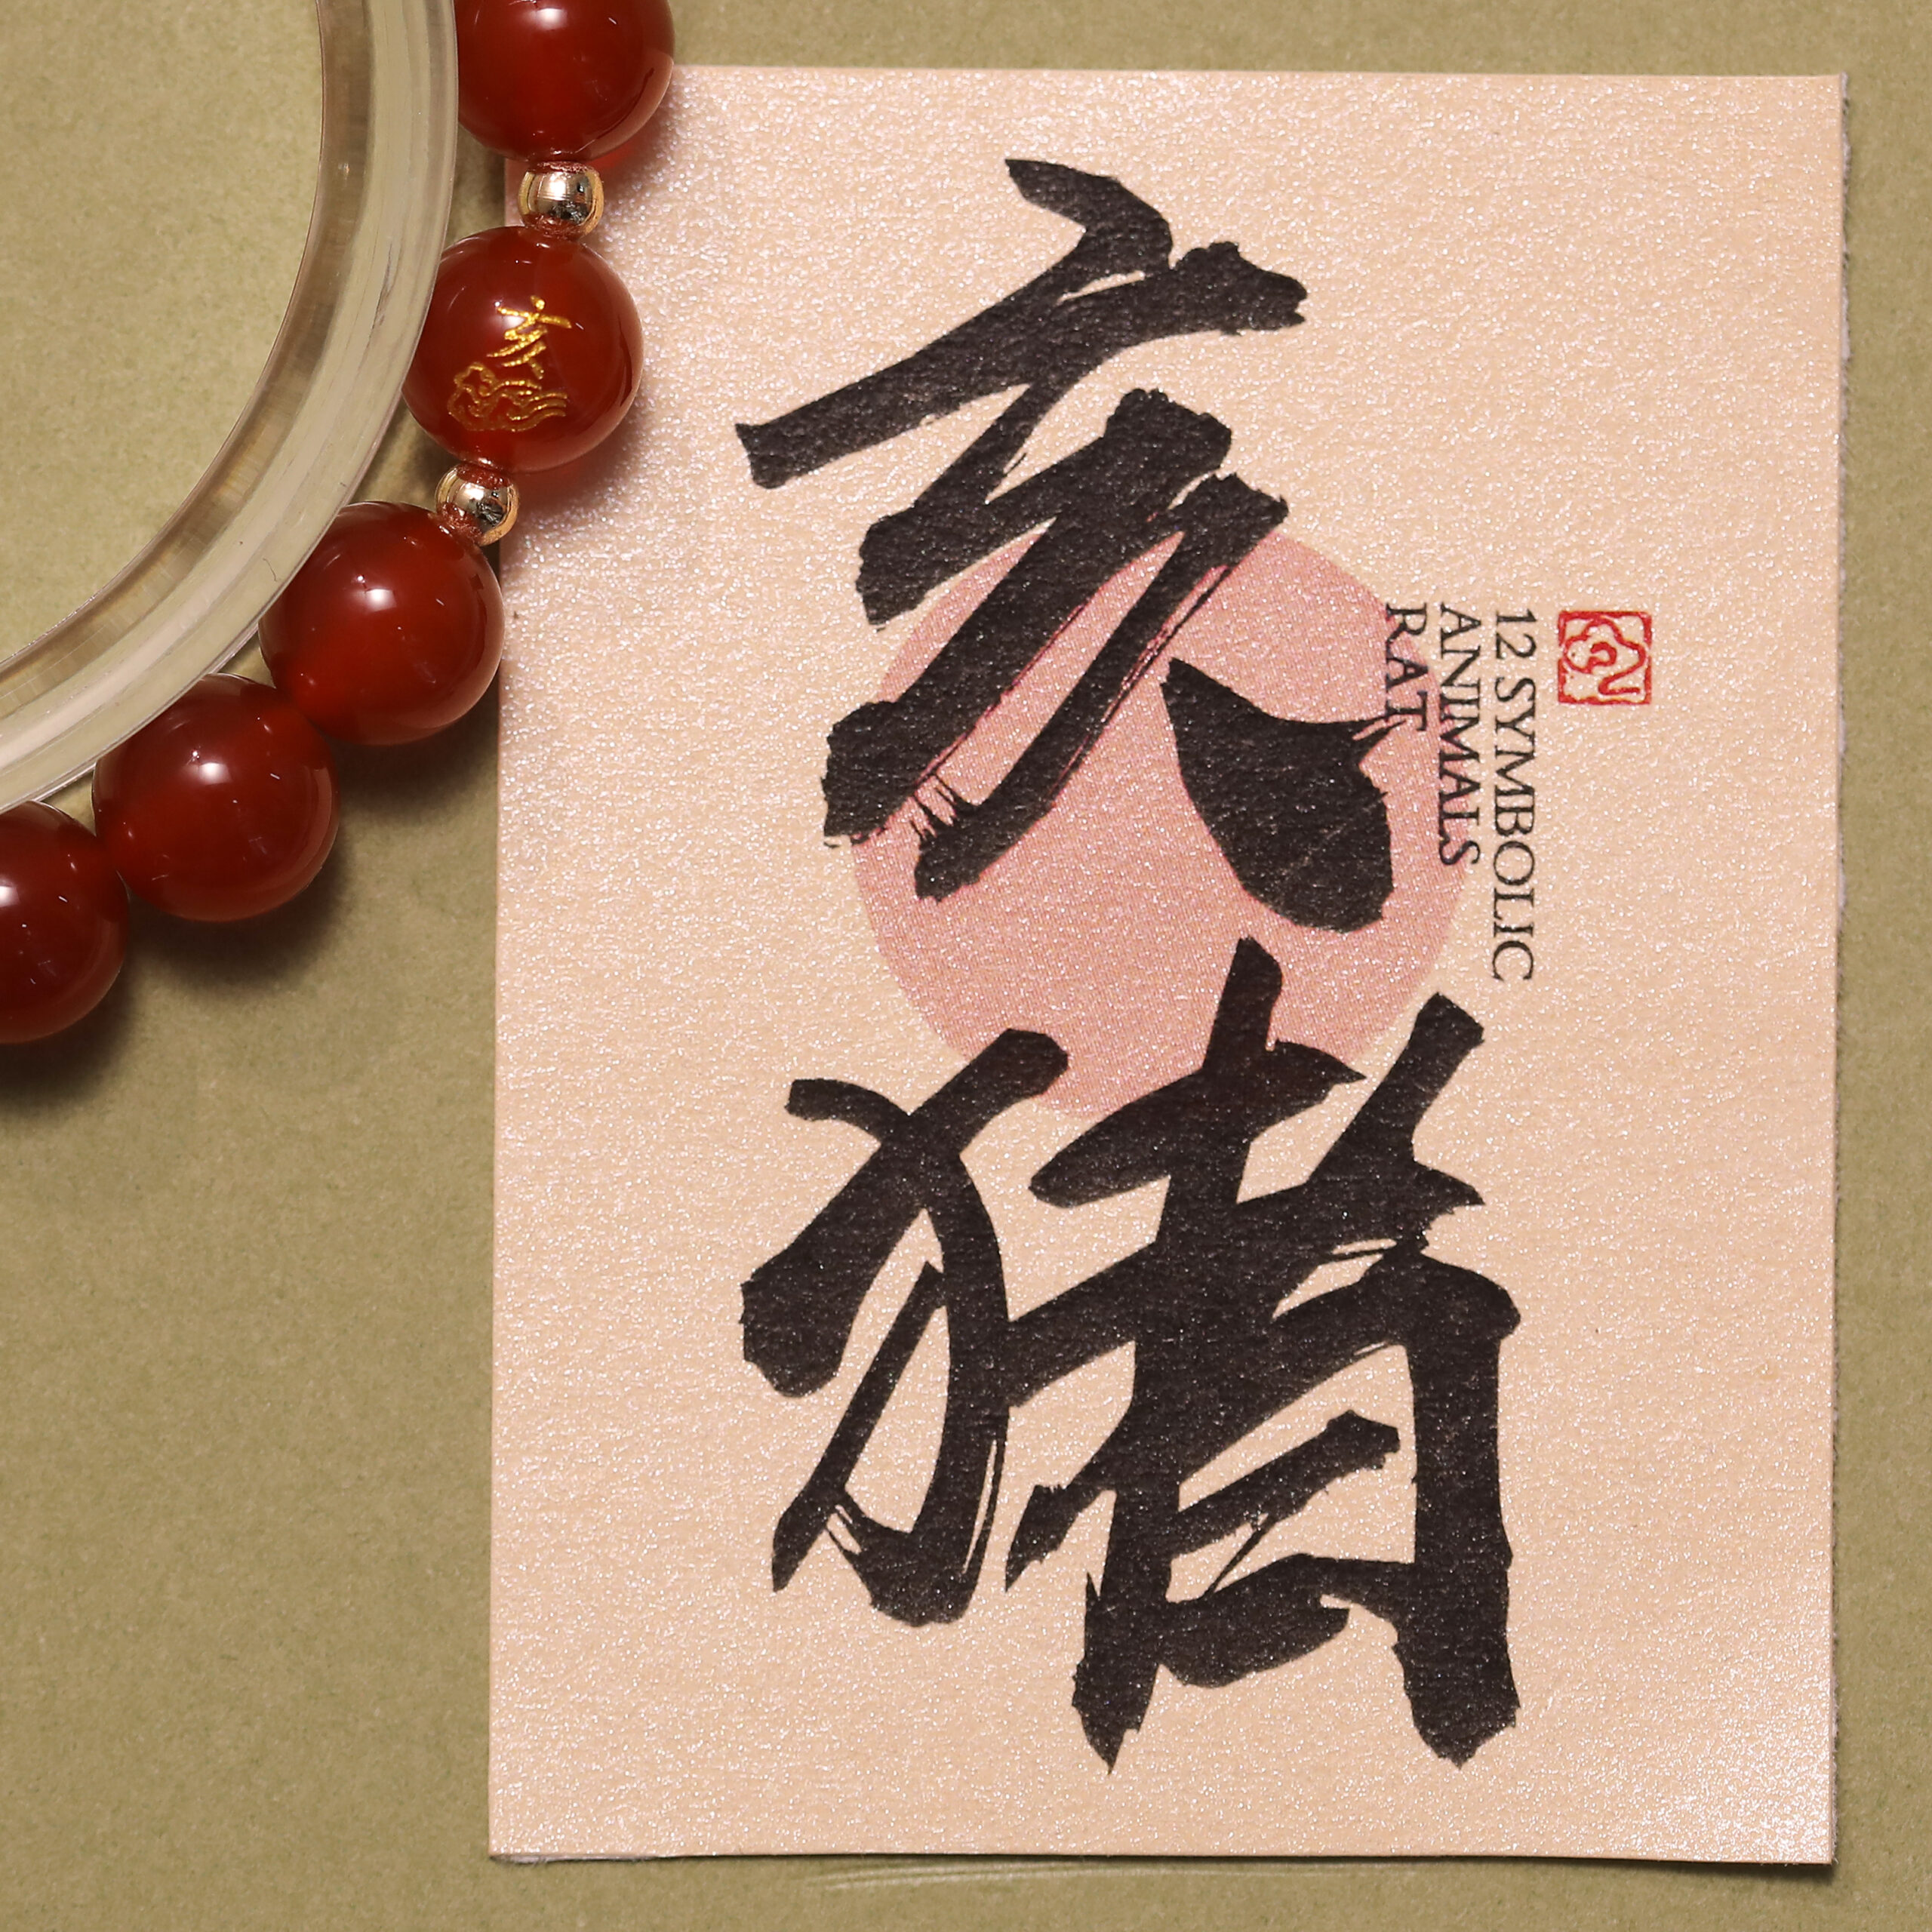 亥猪
12 SYMBOLIC
ANIMALS
RAT
亥